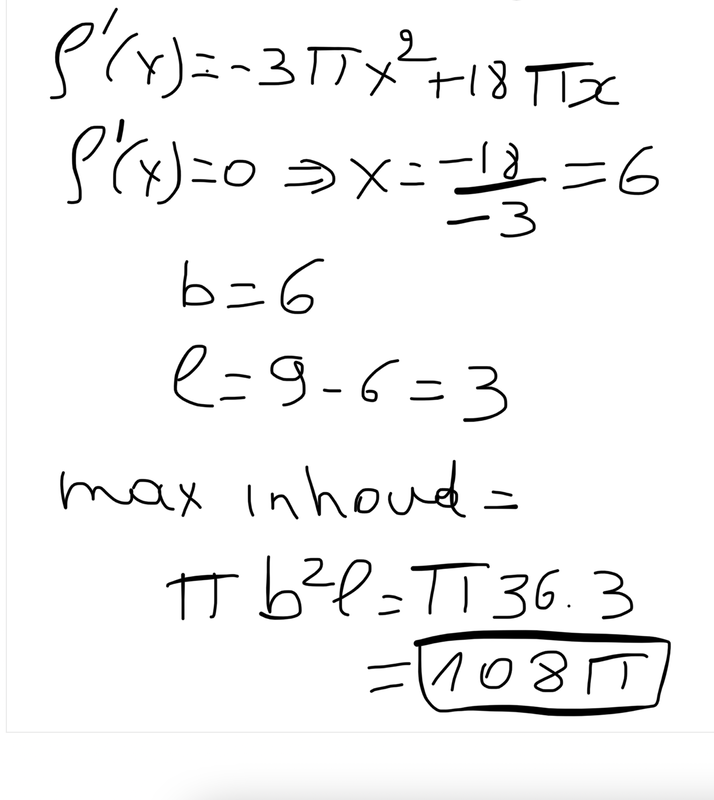 f'(x)=-3πx²+18πx
f'(x)=0 ⇒ x = -18/-3 = 6
b=6
l=9-6=3
max inhoud =
π b²l = π 36.3
= 108π